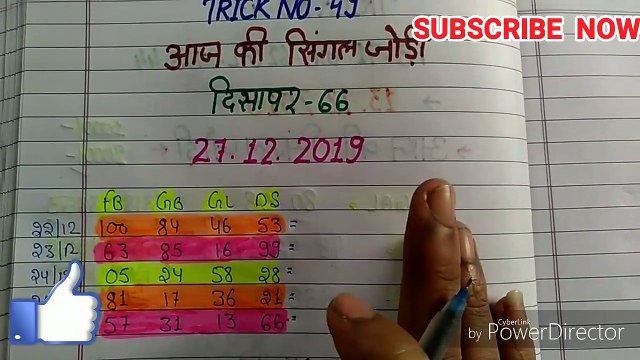 TRICK NO - 49
SUBSCRIBE NOW
आज की सिंगल जोड़ी
दिसावर - 66
27.12.2019
FB GB GL DS
22/12 100 84 46 53 =
23/12 63 85 16 99 =
24/12 05 24 58 28 =
81 17 36 21 =
57 31 13 66 =
CyberLink
by PowerDirector